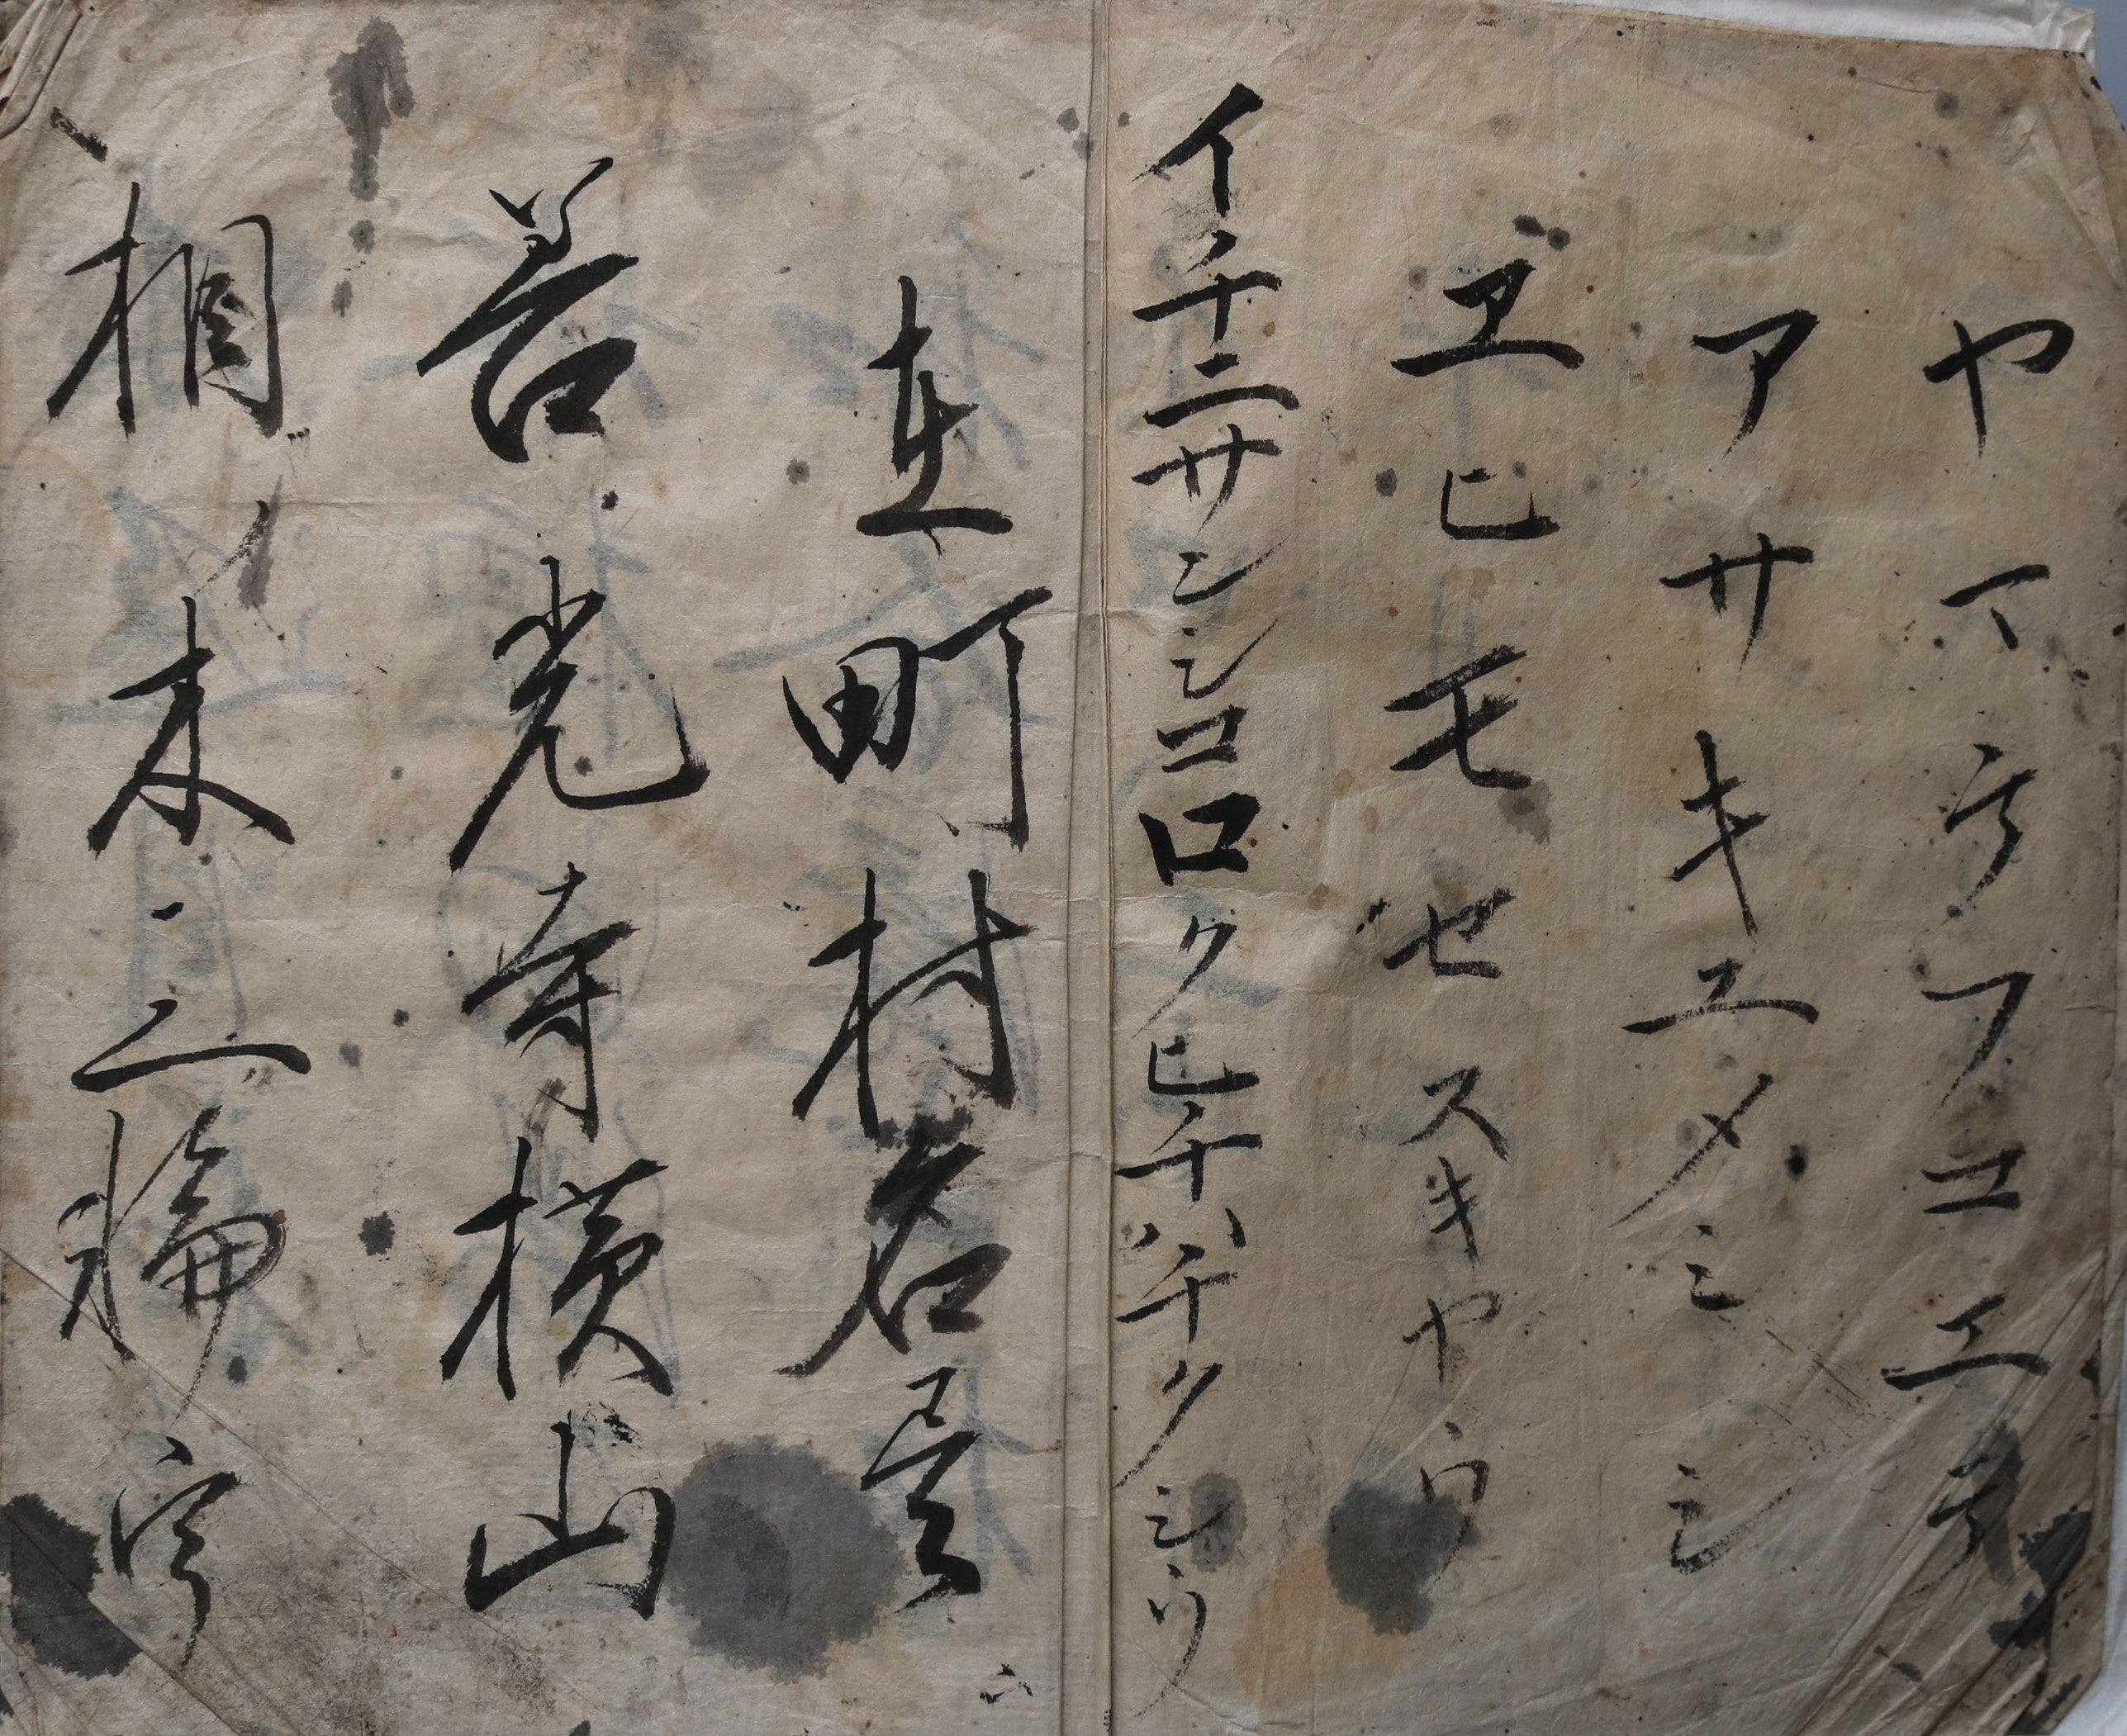 ヤマケフコエテ
アサキユメミシ
ヱヒモセスキヤウ
イチニサンシコロクヒチハチクシウ
在町村名尽
善光寺横山
相ノ木三輪宇